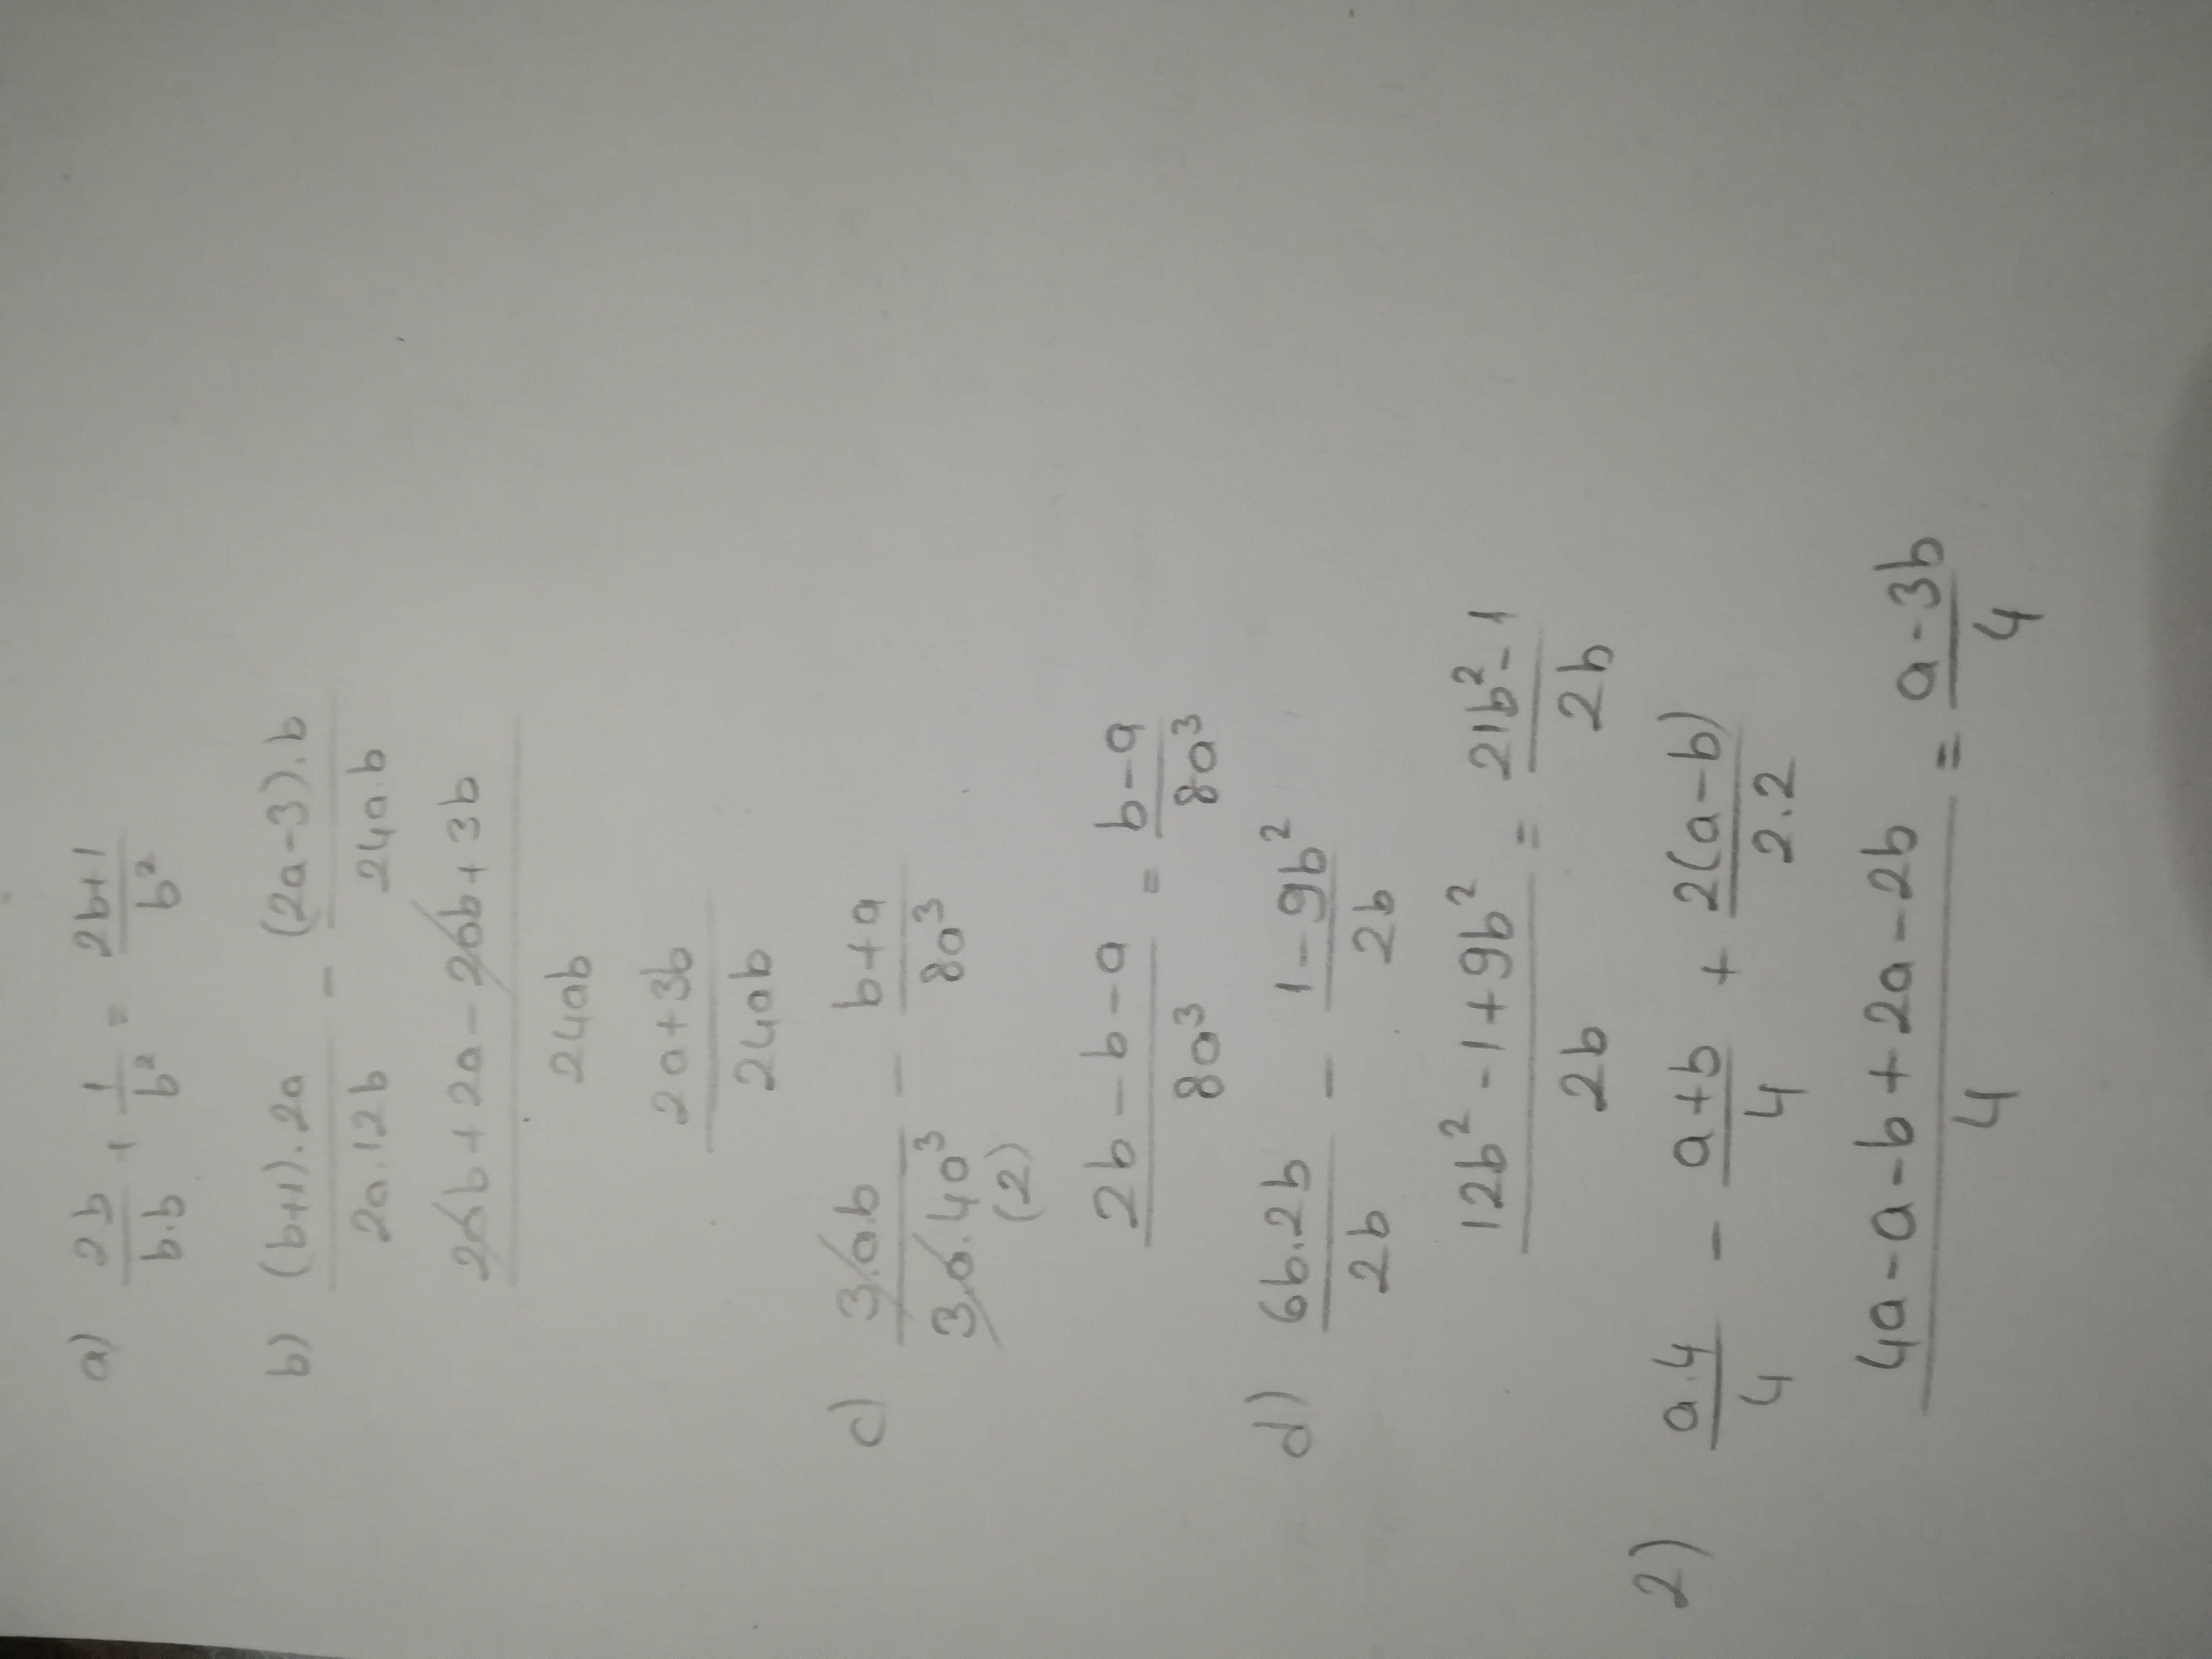 a) 2b/b.b + 1/b² = 2b+1/b²
b) (b+1).2a/2a.12b - (2a-3).b/24a.b
2ab+2a-2ab+3b/24ab
2a+3b/24ab
c) 3.a.b/3.a.4a³ - b+a/8a³
(2)
2b-b-a/8a³ = b-a/8a³
d) 6b.2b/2b - 1-9b²/2b
12b²-1+9b²/2b = 21b²-1/2b
2) a.4/4 - a+b/4 + 2(a-b)/2.2
4a-a-b+2a-2b/4 = a-3b/4